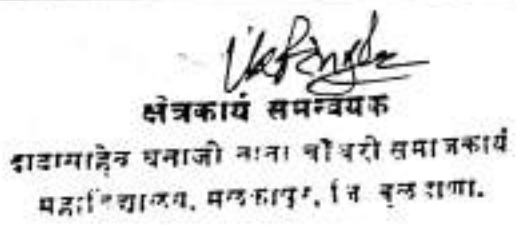 क्षेत्रकार्य समन्वयक
दादासाहेब धनाजी नाना चौधरी समाजकार्य
महाविद्यालय, मलकापुर, जि बुलडाणा.